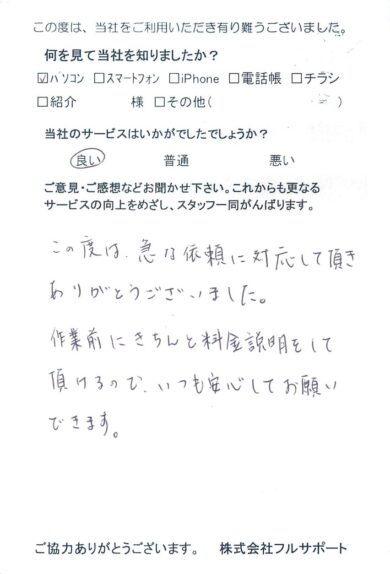 この度は、当社をご利用いただき有り難うございました。
何を見て当社を知りましたか？
☑パソコン □スマートフォン □iPhone □電話帳 □チラシ
□紹介　　　様 □その他(　　　　　　　　)
当社のサービスはいかがでしたでしょうか？
良い　　　普通　　　悪い
ご意見・ご感想などお聞かせ下さい。これからも更なる
サービスの向上をめざし、スタッフ一同がんばります。
この度は、急な依頼に対応して頂き
ありがとうございました。
作業前にきちんと料金説明をして
頂けるので、いつも安心してお願い
できます。
ご協力ありがとうございます。　株式会社フルサポート